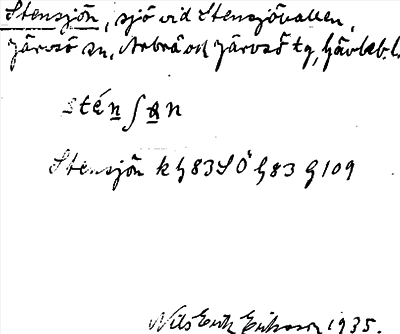 Stensjön, sjö vid Stensjövallen,
Järvsö sn, Arbrå och Järvsö tg, Gävleb. l.
sténʃɑn
Stensjön k G 83 S Ö G 83 G 109
Nils Erik Eriksson 1935.